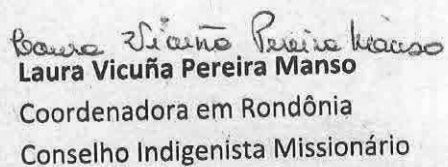 Laura Vicuña Pereira Manso
Laura Vicuña Pereira Manso
Coordenadora em Rondônia
Conselho Indigenista Missionário